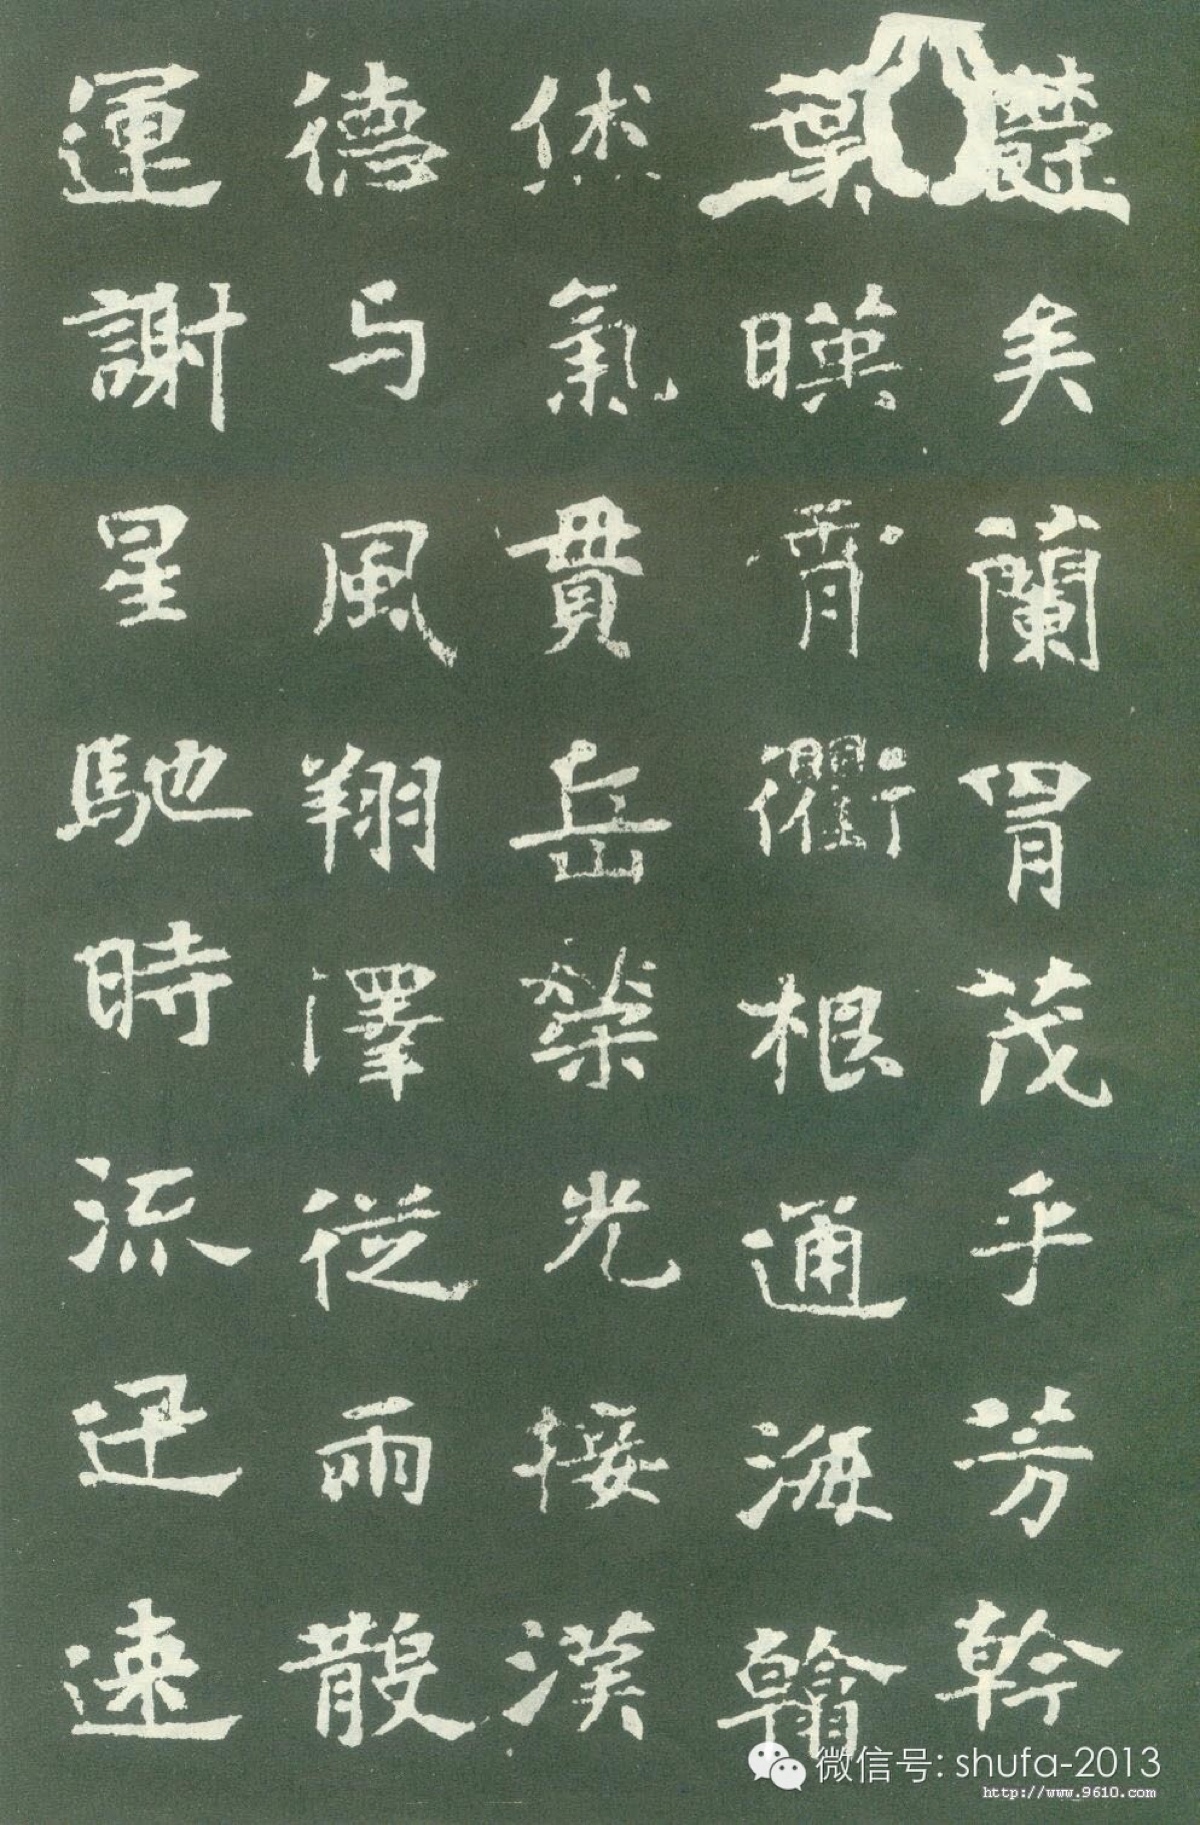 欝矣蘭胄茂乎芳幹
葉暎霄衢根通海翰
烋氣貫岳榮光接漢
德与風翔澤從雨散
運謝星馳時流迅速
微信号: shufa-2013
http://www.9610.com